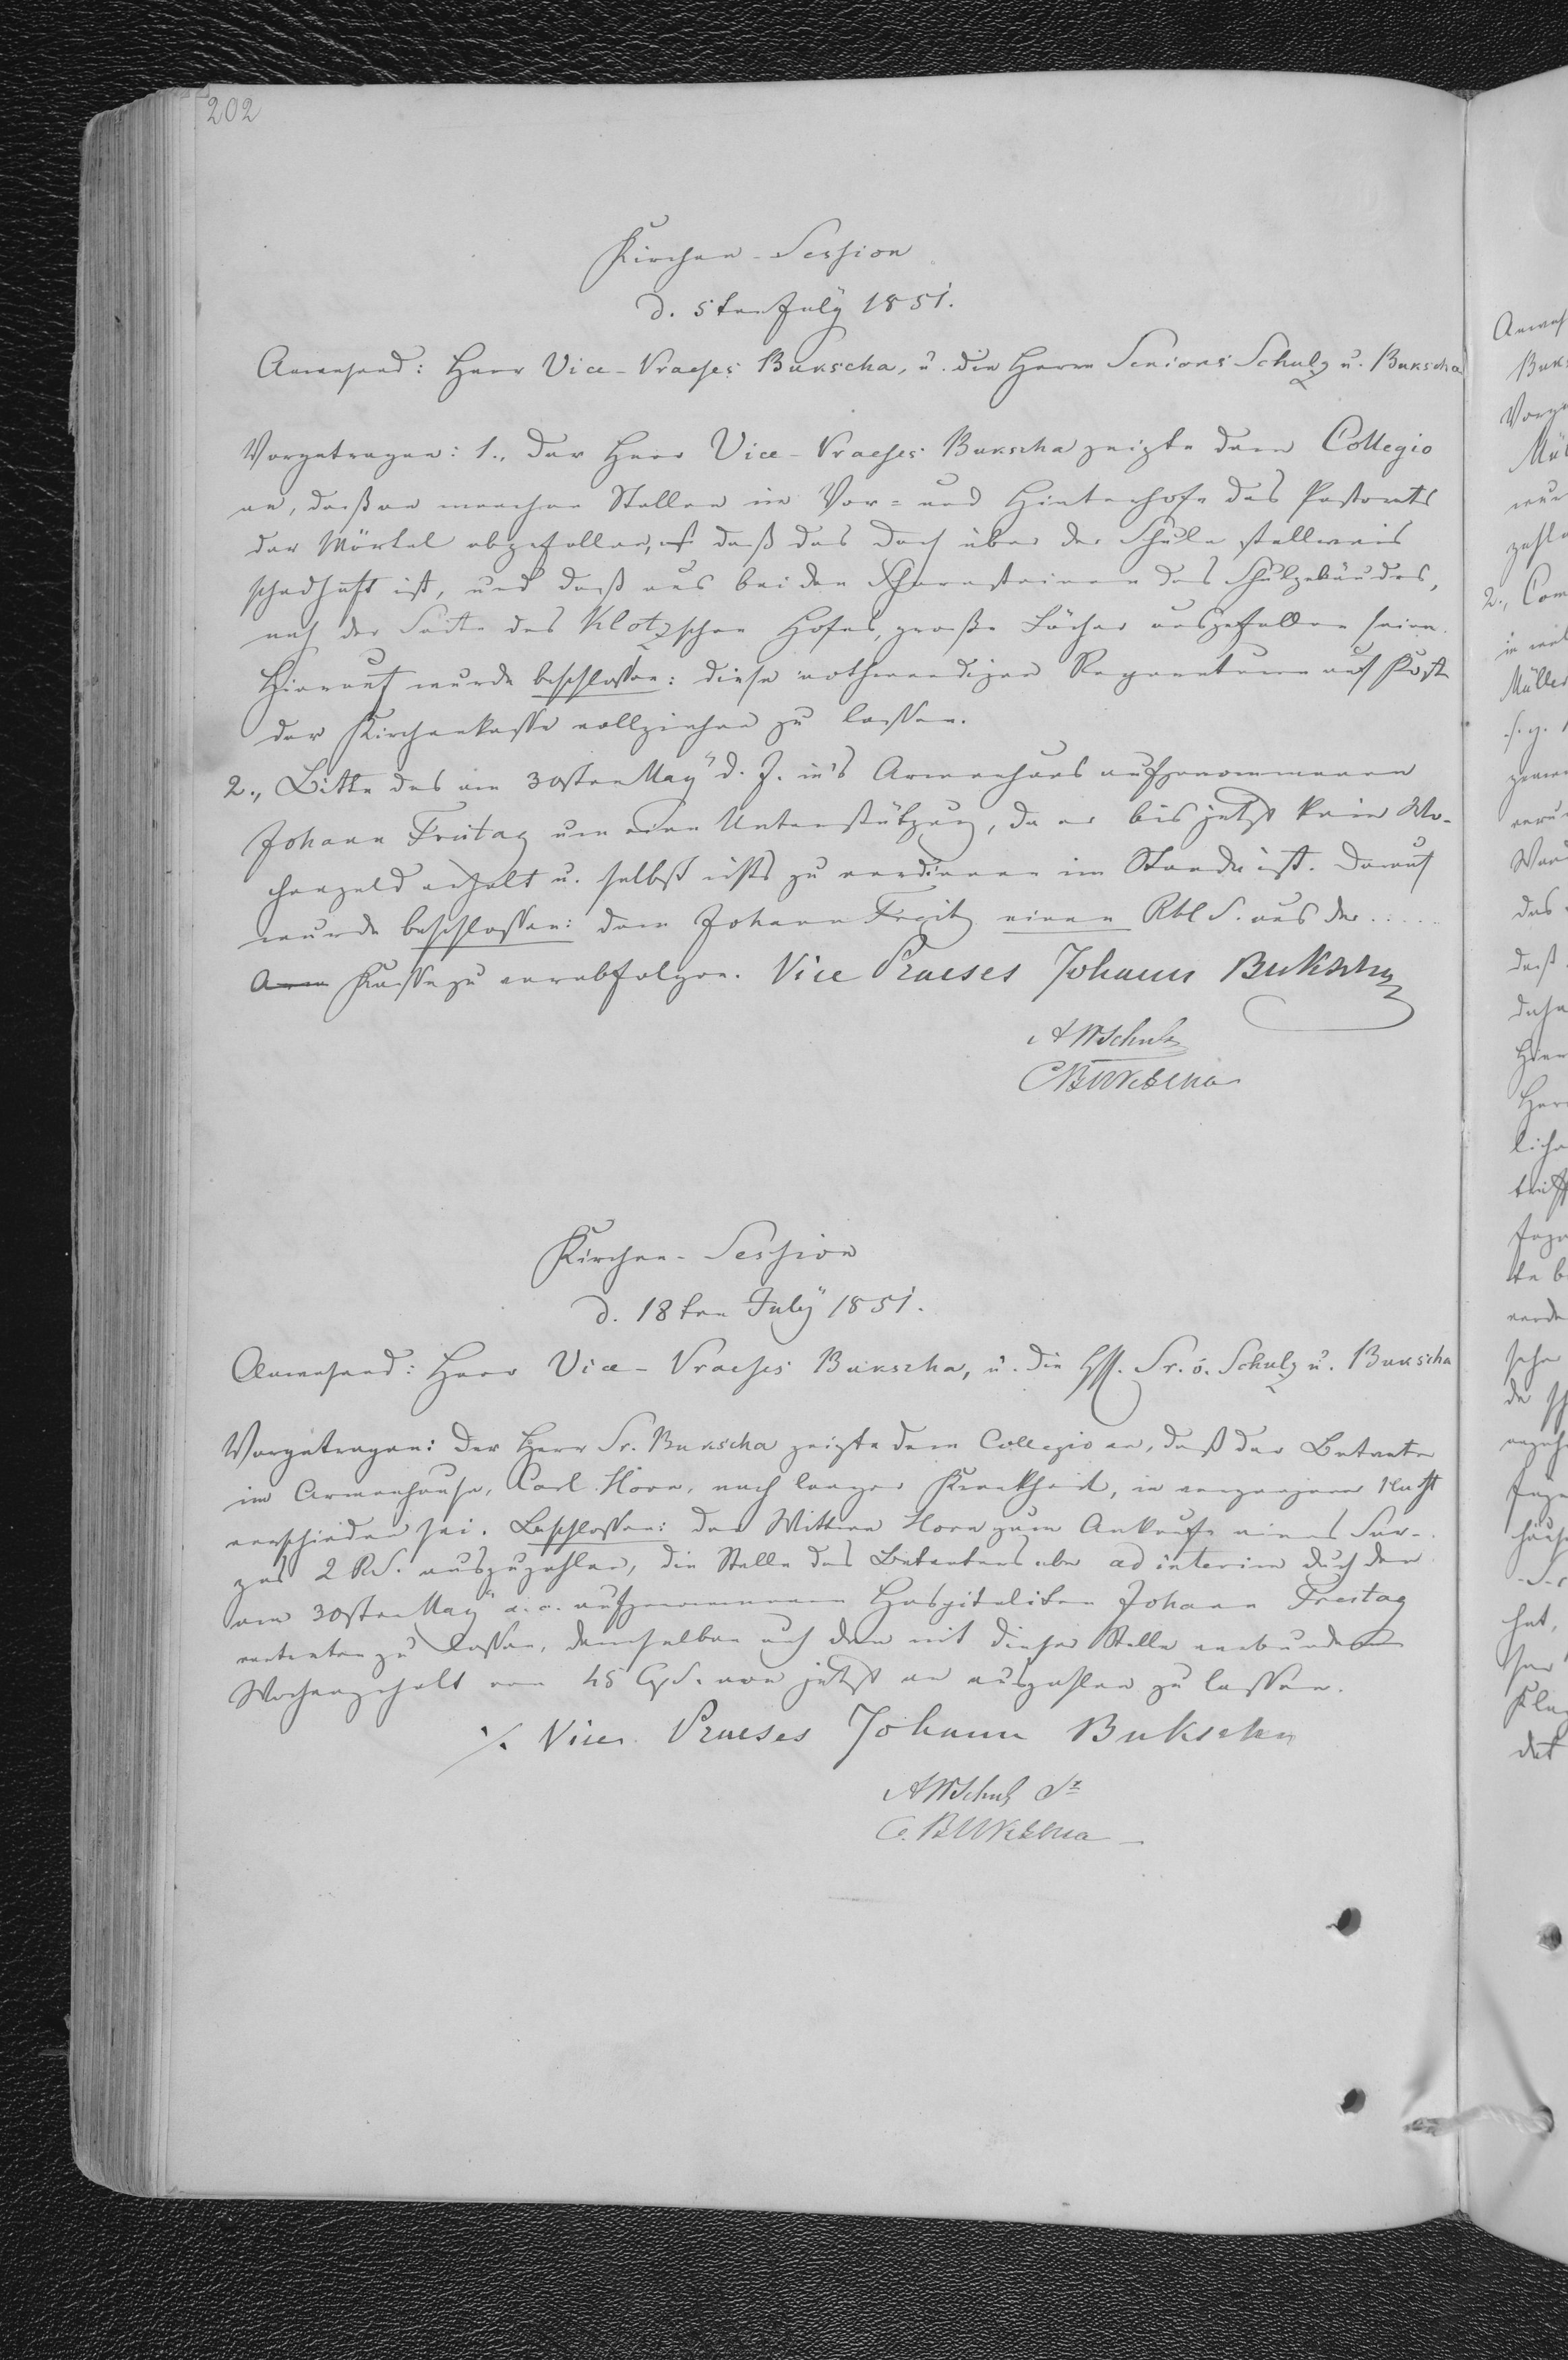 202
Kirchen-Session
d. 5ten July 1851.
Anwesend: Herr Vice-Praeses Bukscha, u. die Herrn Seniors Schulz u. Bukscha
Vorgetragen: 1., Der Herr Vice-Praeses Bukscha zeigte dem Collegio
an, daß an manchen Stellen im Vor- und Hinterhofe des Pastorats
der Mörtel abgefallen, daß das Dach über der Schule stellweis
schadhaft ist, und daß aus bei den Schornsteinen des Schulgebäudes,
nach der Seite des Klotzschen Hofes, große Löcher ausgefallen seien.
Hierauf wurde beschlossen: diese nothwendigen Reparaturen auf Kosten
der Kirchenkasse vollziehen zu lassen.
2., Bitte des am 30sten May d. J. in's Armenhaus aufgenommenen
Johann Freitag um eine Unterstützung, da er bis jetzt kein Wo-
chengeld erhält u. selbst nichts zu verdienen im Stande ist. Darauf
wurde beschlossen: dem Johann Freitag einen Rbl S. aus der .....
Arm Kasse zu verabfolgen. Vice Praeses Johann Bukscha
A W Schulz
C Bukscha
Kirchen-Session
d. 18ten July 1851.
Anwesend: Herr Vice-Praeses Bukscha, u. die HH. Sr. ö. Schulz u. Bukscha
Vorgetragen: Der Herr Sr. Bukscha zeigte dem Collegio an, daß der Betvater
im Armenhause, Carl Horn, nach langer Krankheit, in vergangener Nacht
verschieden sei. Beschlossen: der Wittwe Horn zum Ankaufe eines Sar-
ges 2 R.S. auszuzahlen, die Stelle des Betvaters aber ad interim durch den
am 30sten May a. c. aufgenommenen Hospitaliten Johann Freitag
vertreten zu lassen, demselben auch den mit dieser Stelle verbundenen
Wochengehalt von 45 C.S. von jetzt an auszahlen zu lassen.
Vice Praeses Johann Bukscha
A W Schulz Sr
C. Bukscha